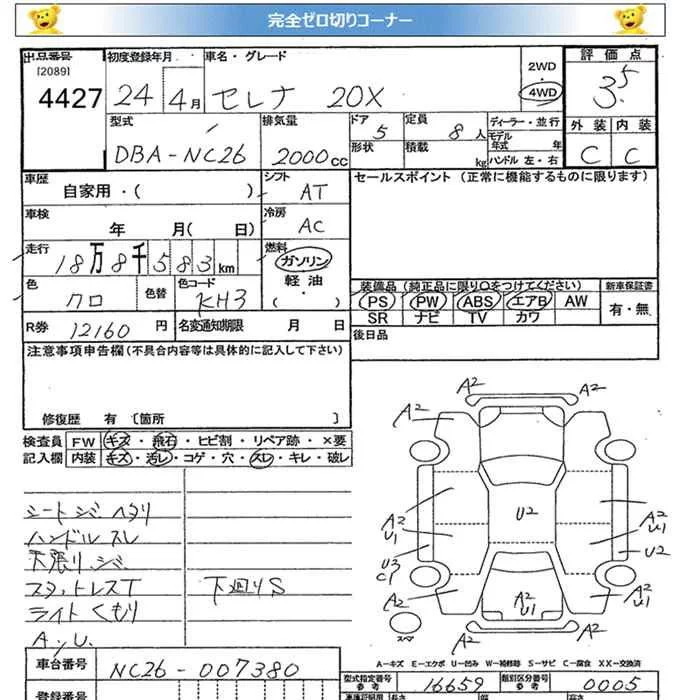 完全ゼロ切りコーナー
出品番号 初度登録年月 車名・グレード 2WD 評価点
[2089]
4427 24年 4月 セレナ 20X ・ 4WD 3.5
型式 排気量 ドア 5 定員 8人 ディーラー・並行 外装 内装
DBA-NC26 2000cc 形状 積載 kg モデル年式 年 ハンドル 左・右 C C
車歴 シフト セールスポイント (正常に機能するものに限ります)
自家用・( ) AT
車検 冷房
年 月( 日) AC
走行 燃料
18万8千583km ガソリン
色 色替 色コード 軽油 装備品 (純正品に限り○をつけてください) 新車保証書
クロ KH3 (・) PS PW ABS エアB AW 有・無
R券 12160円 名変通知期限 月 日 SR ナビ TV カワ
注意事項申告欄 (不具合内容等は具体的に記入して下さい) 後日品
修復歴 有 〔箇所 〕
検査員 FW キズ・飛石・ヒビ割・リペア跡・×要
記入欄 内装 キズ・汚レ・コゲ・穴・スレ・キレ・破レ
シートシミ ヘタリ
ハンドル スレ
天張り シミ
スタットレスT 下廻りS
ライトくもり
A,U.
A2 A2
A2 A2
U2
A2 U1 A2 U1
U3 C1 U2
A2 A2 U1 A2 U1
A2 A2
スペア
A-キズ E-エクボ U-凹み W-補修跡 S-サビ C-腐食 XX-交換済
車台番号 NC26-007380
型式指定番号 参考 16659 類別区分番号 参考 0005
登録番号 長さ 幅 高さ